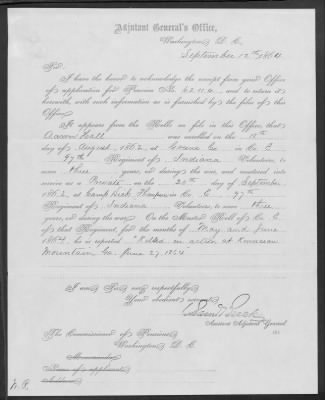 Adjutant General's Office,
Washington D. C.
September 12th 1864
Sir,
I have the honor to acknowledge the receipt from your Office
of application for Pension No. 62.110, and to return it
herewith, with such information as is furnished by the files of this
Office.
It appears from the Rolls on file in this Office, that
Aaron Hall was enrolled on the
day of August, 1862, at in Co. E
97th Regiment of Indiana Volunteers, to
serve three years, or during the war, and mustered into
service as a Private on the 20th day of September,
1862, at Camp in Co. E 97th
Regiment of Indiana Volunteers, to serve three
years, or during the war. On the Muster Roll of Co. E
of that Regiment, for the months of May and June
1864, he is reported "Killed in action at Kenesaw
Mountain Ga. June 27, 1864
I am Sir, very respectfully
Your obedient servant
Assistant Adjutant General
The Commissioner of Pensions
Washington D. C.
Memoranda
Name of applicant
Address